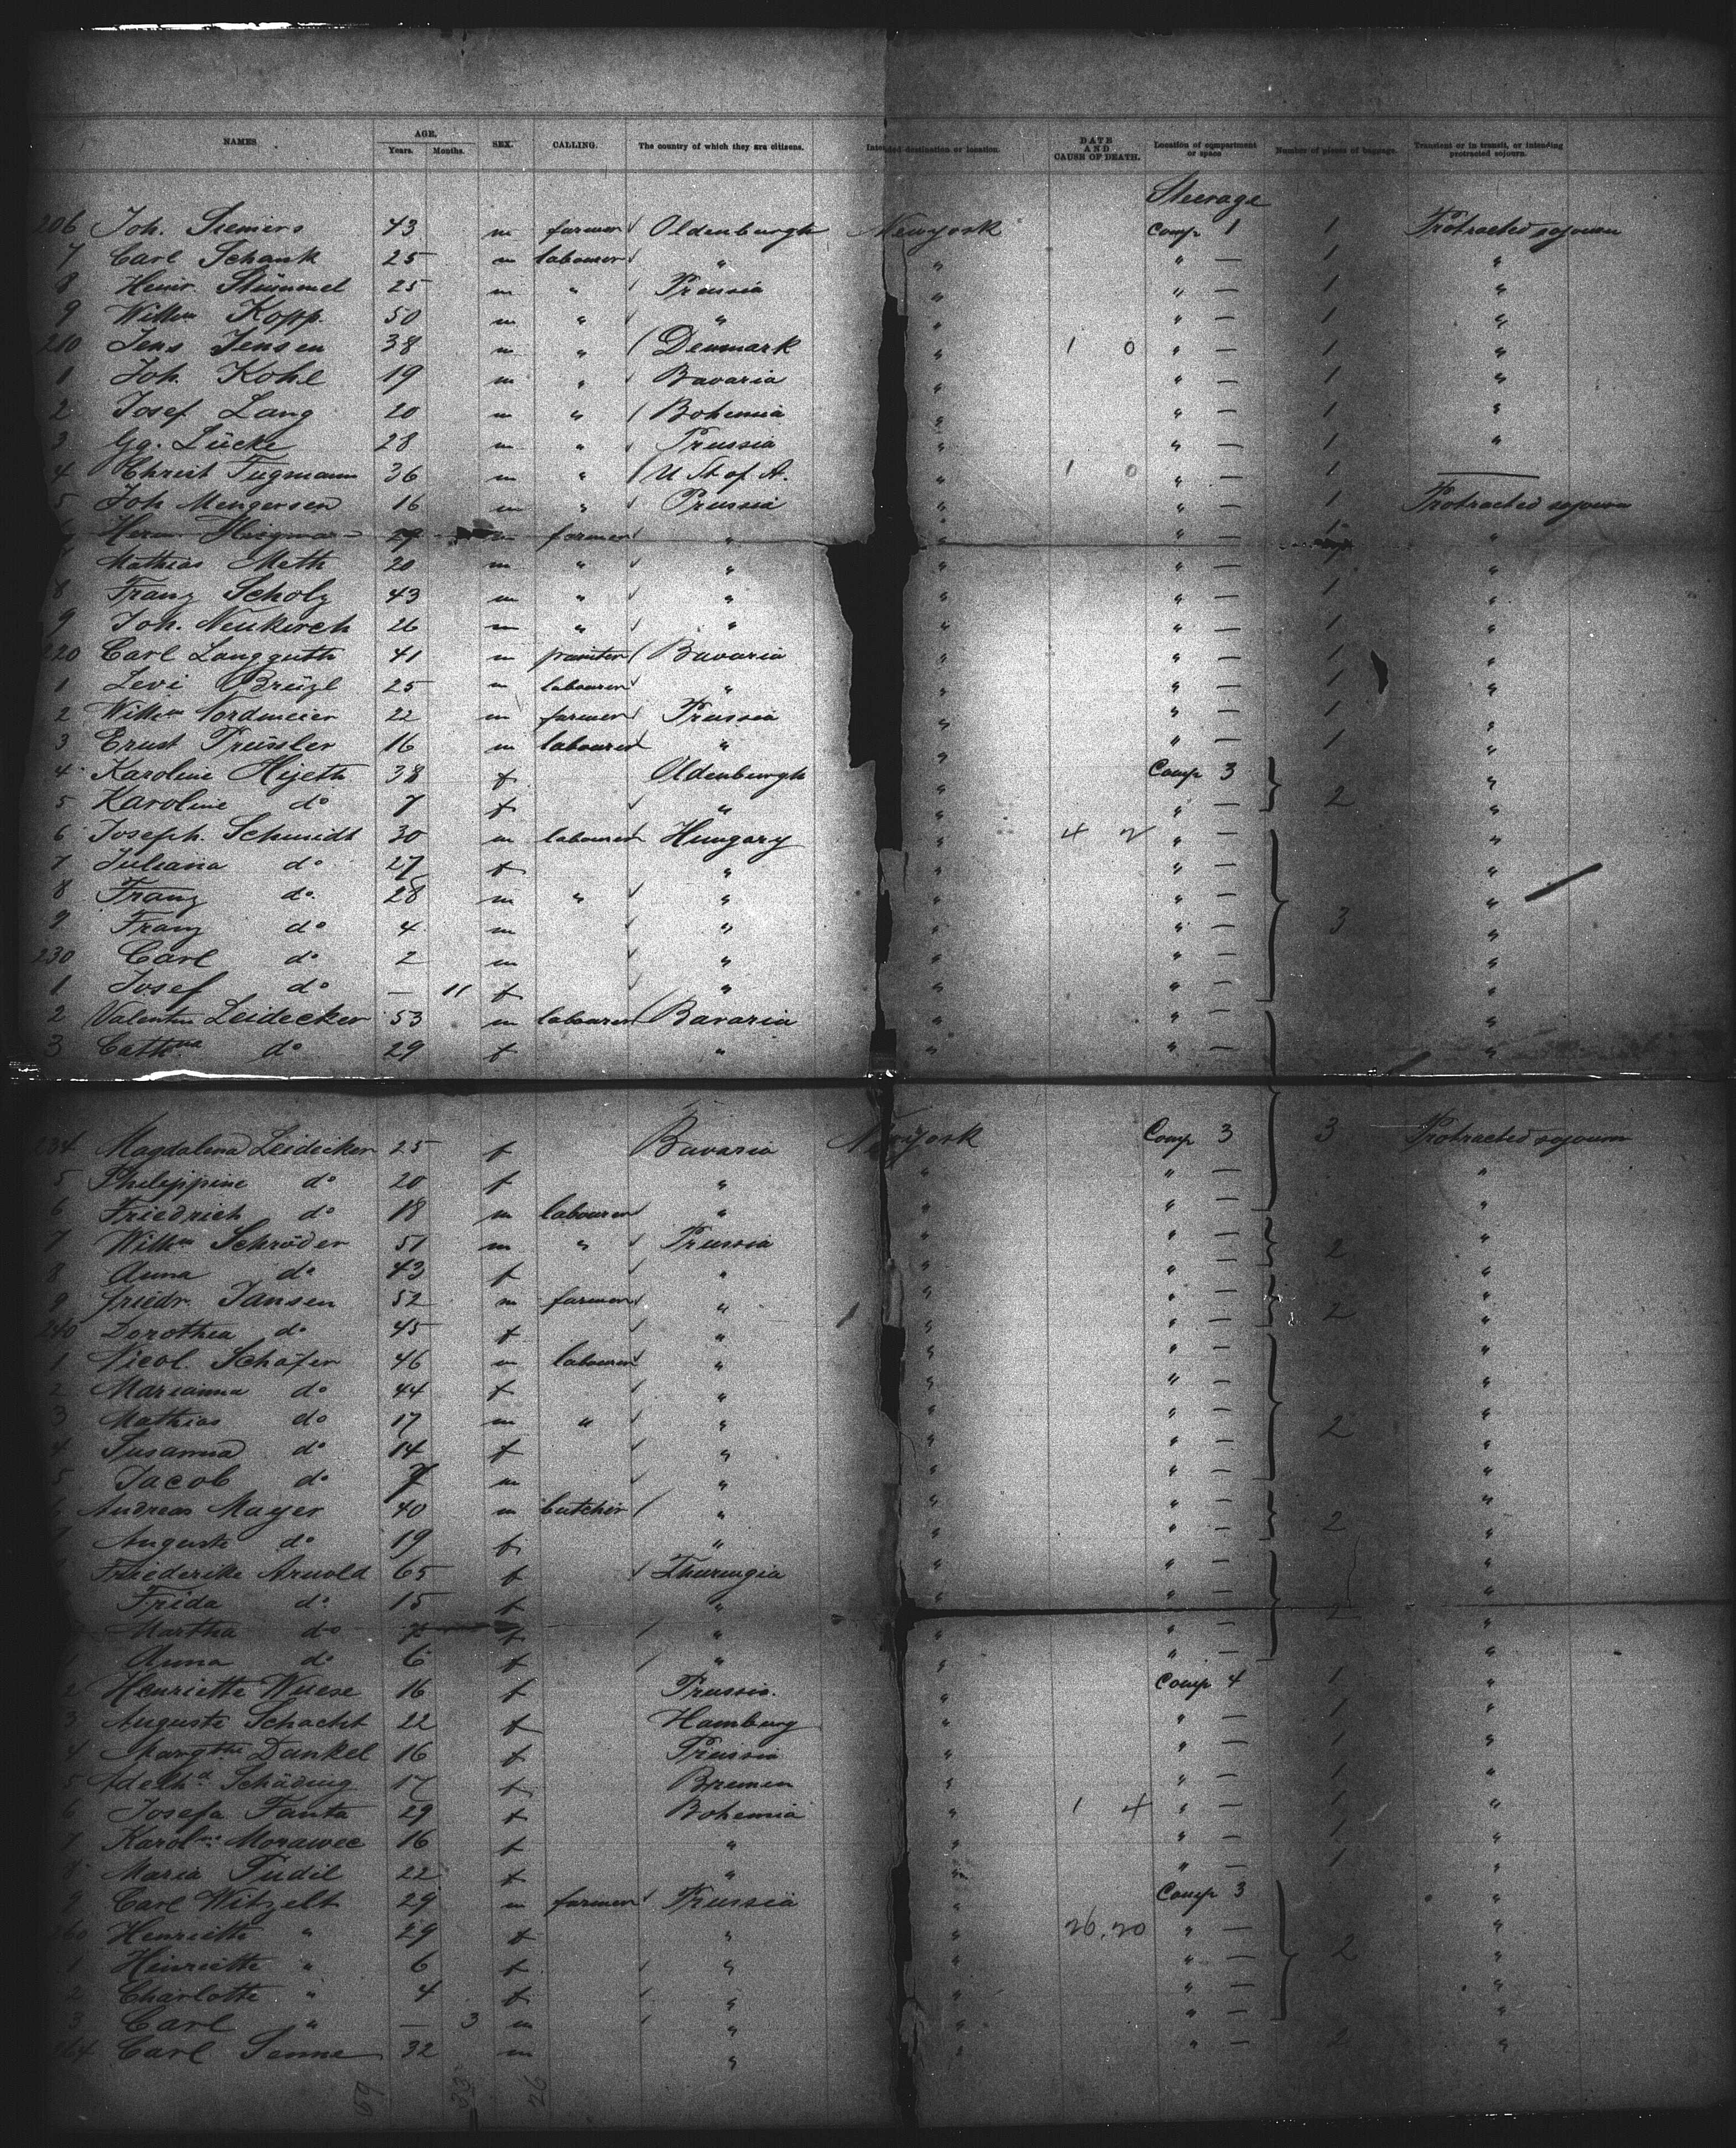 NAMES AGE. Years. Months. SEX. CALLING. The country of which they are citizens. Intended destination or location. DATE AND CAUSE OF DEATH. Location of compartment or space Number of pieces of baggage. Transient or in transit, or intending protracted sojourn.
Steerage
206 Joh. Siemers 43 m farmer Oldenburgh Newyork Comp 1 1 Protracted sojourn
7 Carl Schank 25 m labourer " " " — 1 "
8 Heinr. Stümmel 25 m " Prussia " " — 1 "
9 Willm Kopp. 50 m " " " " — 1 "
210 Jens Jensen 38 m " Denmark " 1 0 " — 1 "
1 Joh. Kohl 19 m " Bavaria " " — 1 "
2 Josef Lang 20 m " Bohemia " " — 1 "
3 Gg. Lücke 28 m " Prussia " " — 1 "
4 Christ Tugmann 36 m " U St of A. " 1 0 " — 1 —
5 Joh Mengersen 16 m " Prussia " " — 1 Protracted sojourn
Herm 29 m farmer " " " — 1 "
7 Mathias Meth 20 m " " " " — "
8 Franz Scholz 43 m " " " " — 1 "
9 Joh. Neukirch 26 m " " " " — 1 "
220 Carl Langguth 41 m painter Bavaria " " — 1 "
1 Levi Breizl 25 m labourer " " " — 1 "
2 Willm Nordmeier 22 m farmer Prussia " " — 1 "
3 Ernst Preissler 16 m labourer " " " — 1 "
4 Karoline Hijeth 38 f Oldenburgh " Comp 3 "
5 Karoline do 7 f " " " — 2 "
6 Joseph. Schmidt 30 m labourer Hungary " 4 2 " — "
7 Juliana do 27 f " " " — "
8 Franz do. 28 m " " " " — "
9 Franz do 4 m " " " — 3 "
230 Carl do 2 m " " " — "
1 Josef do — 11 f " " " — "
2 Valentin Leidecker 53 m labourer Bavaria " " — "
3 Cathna do 29 f " " " — "
234 Magdalena Leidecker 25 f Bavaria Newyork Comp 3 3 Protracted sojourn
5 Philippine do 20 f " " " — "
6 Friedrich do 18 m labourer " " " — "
7 Willm Schröder 51 m " Prussia " " — 2 "
8 Anna do 43 f " " " — "
9 Friedr. Jansen 52 m farmer " " " — 2 "
240 Dorothea do 45 f " " " — "
1 Nicol. Schäfer 46 m labourer " " " — "
2 Marianna do 44 f " " " — "
3 Mathias do 17 m " " " " — 2 "
4 Susanna do 14 f " " " — "
5 Jacob do 7 m " " " — "
6 Andreas Mayer 40 m butcher " " " — 2 "
7 Auguste do 19 f " " " — "
Friederike Arnold 65 f Thuringia " " — "
Frida do 15 f " " " — 2 "
Martha do 7 f " " " — "
1 Anna do 6 f " " " — "
2 Henriette Wuese 16 f Prussia. " Comp 4 1 "
3 Auguste Schacht 22 f Hamburg " " — 1 "
4 Margthe Dankel 16 f Prussia " " — 1 "
5 Adelhd Schäding 17 f Bremen " " — 1 "
6 Josefa Fanta 29 f Bohemia " 1 4 " — 1 "
7 Karolne Morawec 16 f " " " — 1 "
8 Maria Pudil 22 f " " " — 1 "
9 Carl Witzelt 29 m farmer Prussia " Comp 3 "
260 Henriette " 29 f " " 26.20 " — "
1 Heinriette " 6 f " " " — 2 "
2 Charlotte " 4 f " " " — "
3 Carl " — 3 m " " " — "
264 Carl Senne 32 m " " " — 2 "
59 33 26